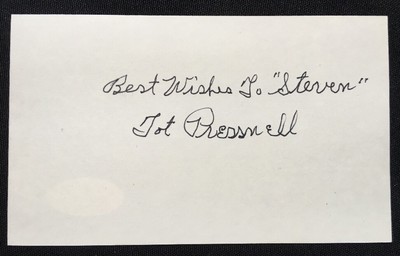 Best Wishes To "Steven"
Tot Pressnell